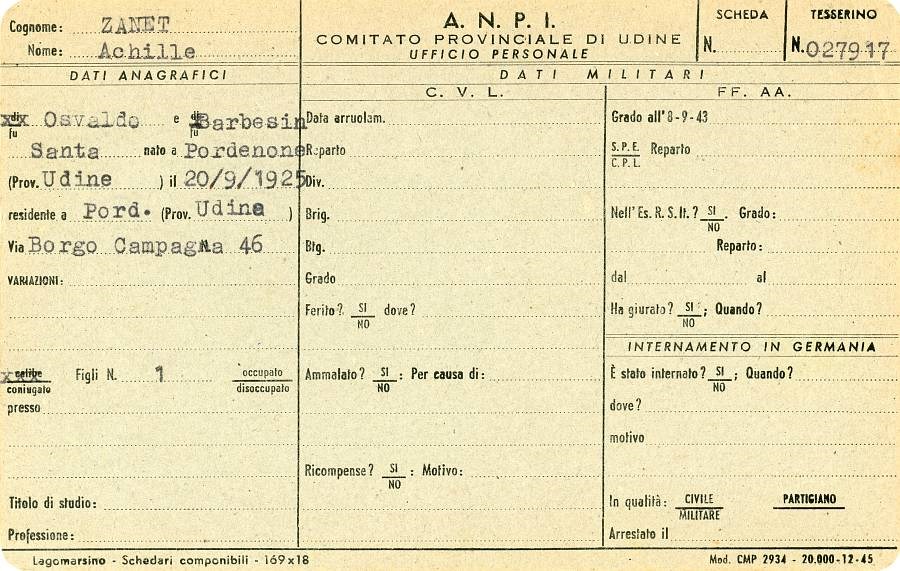 Cognome: ZANET
Nome: Achille
A. N. P. I.
COMITATO PROVINCIALE DI UDINE
UFFICIO PERSONALE
SCHEDA
N.
TESSERINO
N. 027917
DATI ANAGRAFICI
xx Osvaldo e di Barbesin
fu fu
Santa nato a Pordenone
(Prov. Udine ) il 20/9/1925
residente a Pord. (Prov. Udine )
Via Borgo Campagna N. 46
VARIAZIONI:
celibe
coniugato
Figli N. 1
occupato
disoccupato
presso
Titolo di studio:
Professione:
DATI MILITARI
C. V. L.
Data arruolam.
Reparto
Div.
Brig.
Btg.
Grado
Ferito? SI
NO
dove?
Ammalato? SI
NO
: Per causa di:
Ricompense? SI
NO
: Motivo:
FF. AA.
Grado all'8-9-43
S.P.E.
C.P.L.
Reparto
Nell'Es. R. S. It.? SI
NO
. Grado:
Reparto:
dal al
Ha giurato? SI
NO
; Quando?
INTERNAMENTO IN GERMANIA
È stato internato? SI
NO
; Quando?
dove?
motivo
In qualità: CIVILE
MILITARE
PARTIGIANO
Arrestato il
Lagomarsino - Schedari componibili - 169x18
Mod. CMP 2934 - 20.000-12-45